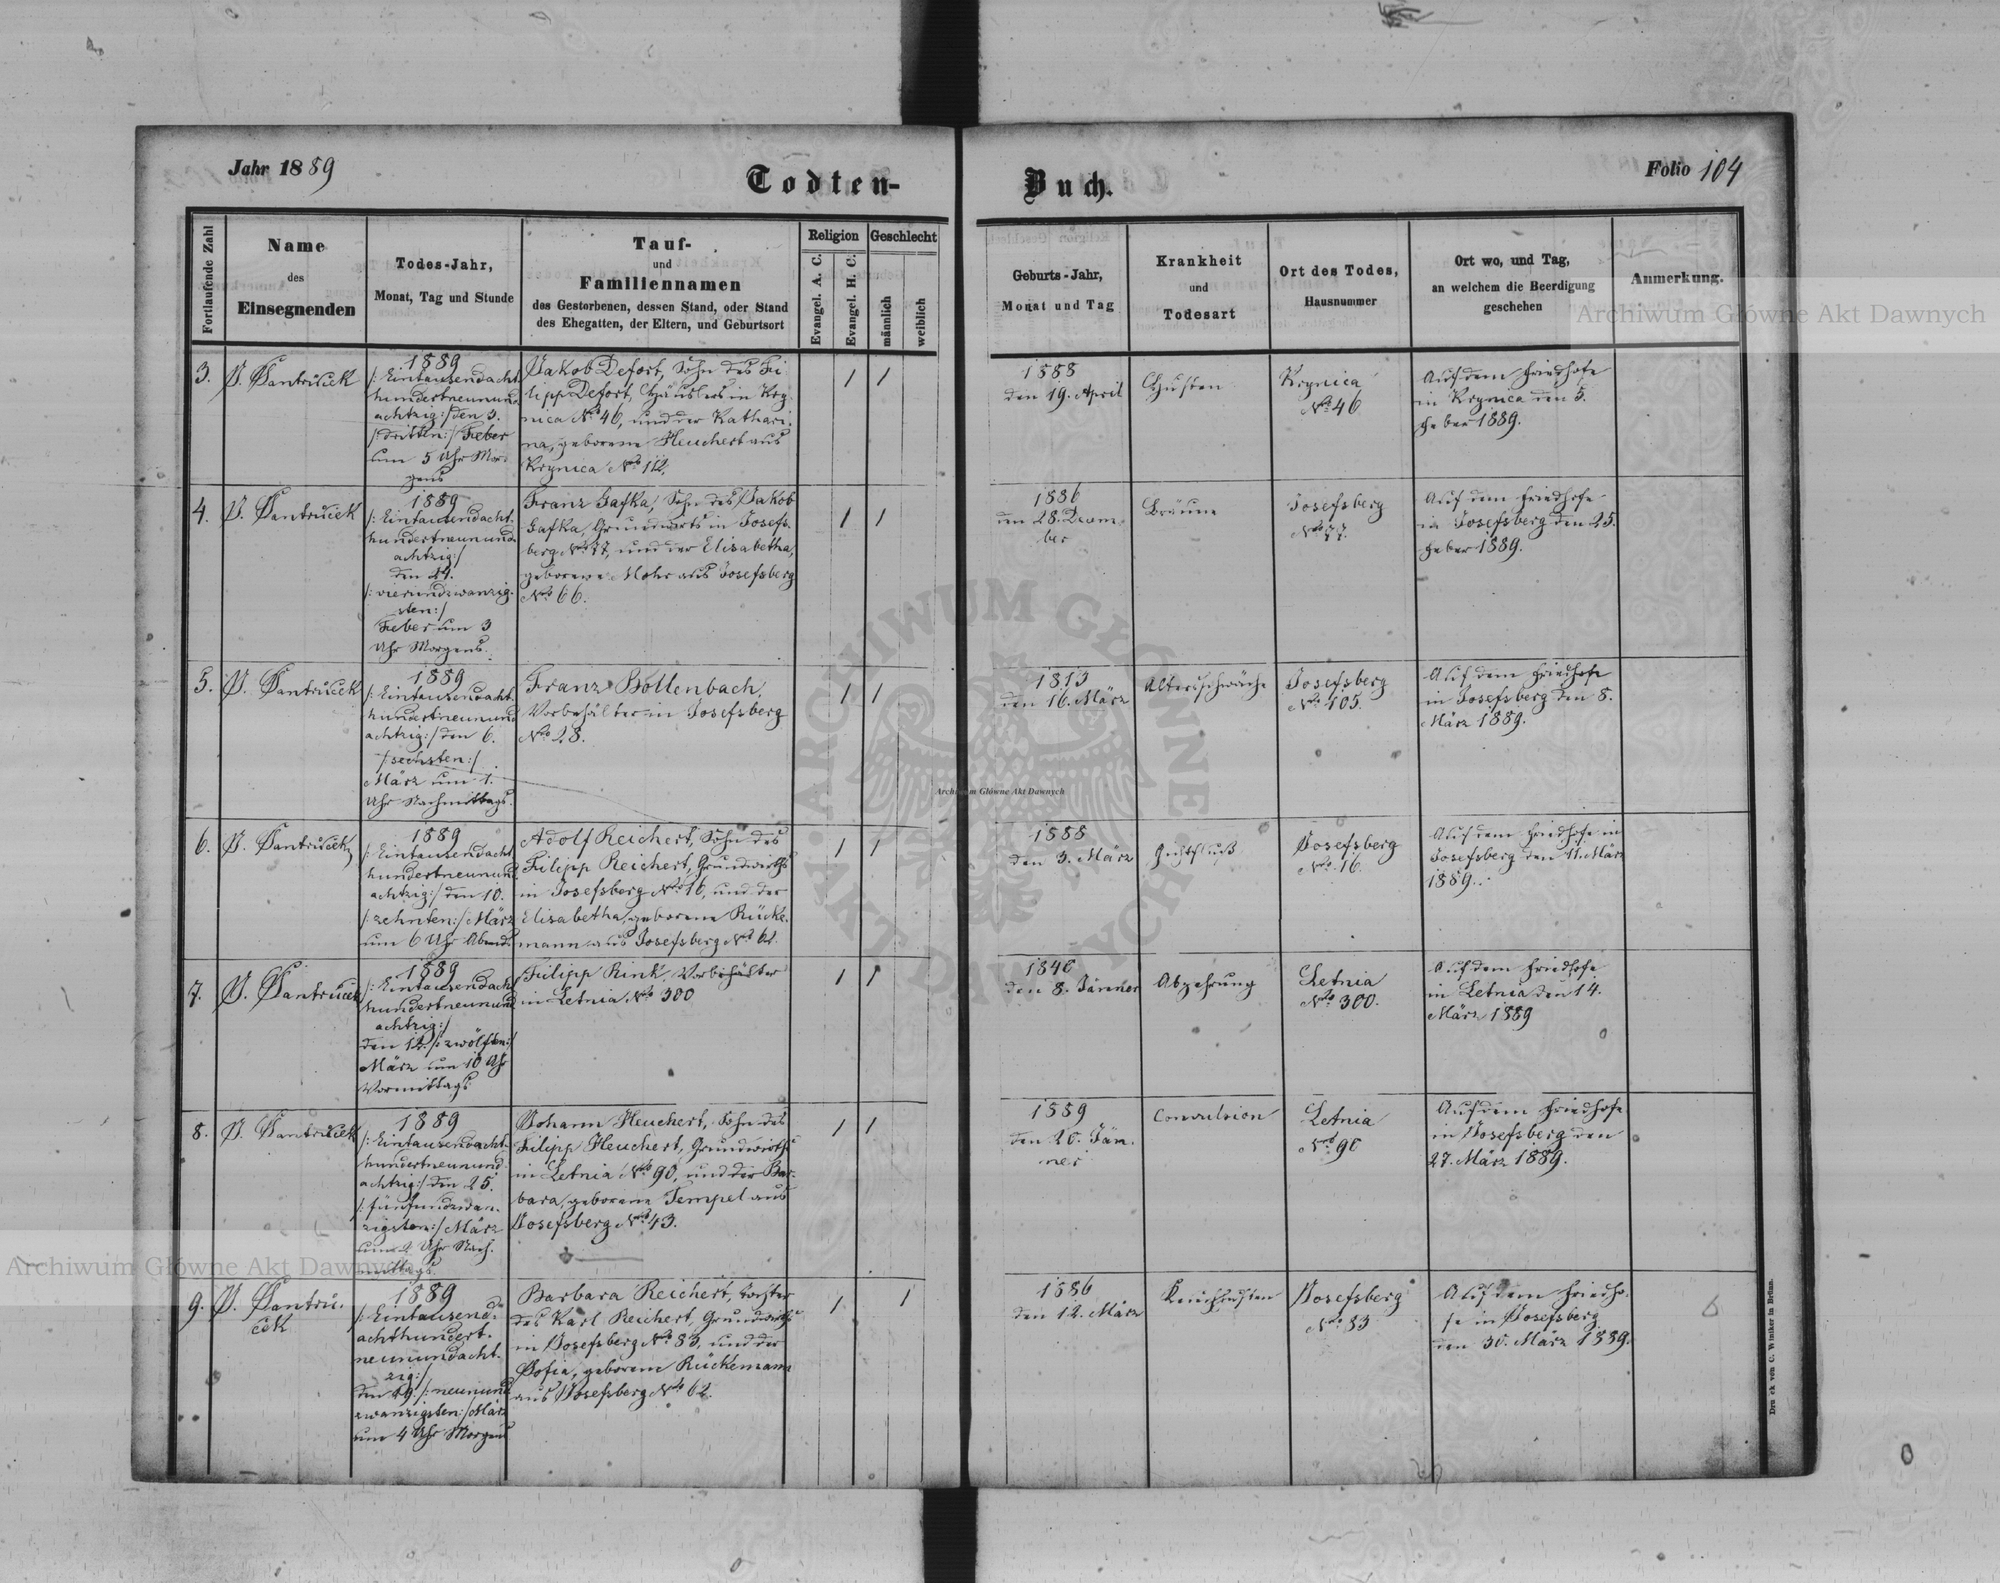 Jahr 1889
Todten-
Buch.
Folio 104
Fortlaufende Zahl
Name
des
Einsegnenden
Todes-Jahr,
Monat, Tag und Stunde
Tauf-
und
Familiennamen
des Gestorbenen, dessen Stand, oder Stand
des Ehegatten, der Eltern, und Geburtsort
Religion
Evangel. A. C.
Evangel. H. C.
Geschlecht
männlich
weiblich
Geburts-Jahr,
Monat und Tag
Krankheit
und
Todesart
Ort des Todes,
Hausnummer
Ort wo, und Tag,
an welchem die Beerdigung
geschehen
Anmerkung.
3.
P. Šantrůček
1889
/: Eintausendacht
hundertneunund
achtzig:/ den 3.
/:dritten:/ Feber
um 5 Uhr Mor-
gens
Jakob Defort, Sohn des Fi-
lipp Defort, Häuslers in Kry-
nica No 46, und der Kathari-
na, geborene Heuchert aus
Krynica No 112.
/ /
1888
den 19. April
Husten
Krynica
No 46
Auf dem Friedhofe
in Krynica den 5.
Feber 1889.
4.
P. Šantrůček
1889
/: Eintausendacht-
hundertneunund
achtzig:/
den 24.
/: vierundzwanzig-
sten:/
Feber um 3
Uhr Morgens.
Franz Gafka, Sohn des Jakob
Gafka, Grundwirts in Josefs-
berg No 77, und der Elisabetha,
geborene Mohr aus Josefsberg
No 66.
/ /
1886
den 28. Dezem-
ber
Bräune
Josefsberg
No 77.
Auf dem Friedhofe
in Josefsberg den 25.
Feber 1889.
5.
P. Šantrůček
1889
/: Eintausendacht
hundertneunund
achtzig:/ den 6.
/:sechsten:/
März um 1.
Uhr Nachmittags.
Franz Bollenbach,
Vorbehälter in Josefsberg
No 28.
/ /
1813
den 16. März
Altersschwäche
Josefsberg
No 105.
Auf dem Friedhofe
in Josefsberg den 8.
März 1889.
6.
P. Šantrůček
1889
/: Eintausendacht
hundertneunund
achtzig:/ den 10.
/: zehnten:/ März
um 6 Uhr Abends
Adolf Reichert, Sohn des
Filipp Reichert, Grundwirths
in Josefsberg No 16, und der
Elisabetha, geborene Rücke-
mann aus Josefsberg No 62.
/ /
1888
den 3. März
Josefsberg
No 16.
Auf dem Friedhofe in
Josefsberg den 11. März
1889.
7.
P. Šantrůček
1889
/: Eintausendacht
hundertneunund
achtzig:/
den 12. /: zwölften:/
März um 10 Uhr
Vormittags
Filipp Rink, Vorbehälter
in Letnia No 300
/ /
1840
den 8. Jänner
Abzehrung
Letnia
No 300.
Auf dem Friedhofe
in Letnia den 14.
März 1889
8.
P. Šantrůček
1889
/: Eintausendacht-
hundertneunund
achtzig:/ den 25.
/: fünfundzwan-
zigsten:/ März
um 2 Uhr Nach-
mittags
Johann Heuchert, Sohn des
Filipp Heuchert, Grundwirths
in Letnia No 90, und der Bar-
bara, geborene Tempel aus
Josefsberg No 43.
/ /
1889
den 20. Jän-
ner
Convulsion
Letnia
No 90
Auf dem Friedhofe
in Josefsberg den
27. März 1889.
9.
P. Šantrů-
ček
1889
/: Eintausend-
achthundert-
neunundacht-
zig:/
den 29. /: neunund
zwanzigsten:/ März
um 4 Uhr Morgens
Barbara Reichert, Tochter
des Karl Reichert, Grundwirths
in Josefsberg No 83, und der
Sofia, geborene Rückemann
aus Josefsberg No 62.
/ /
1886
den 12. März
Keuchhusten
Josefsberg
No 83
Auf dem Friedho-
fe in Josefsberg
den 30. März 1889.
Druck von C. Winiker in Brünn.
Archiwum Główne Akt Dawnych
Archiwum Główne Akt Dawnych
Archiwum Główne Akt Dawnych
ARCHIWUM GŁÓWNE AKT DAWNYCH